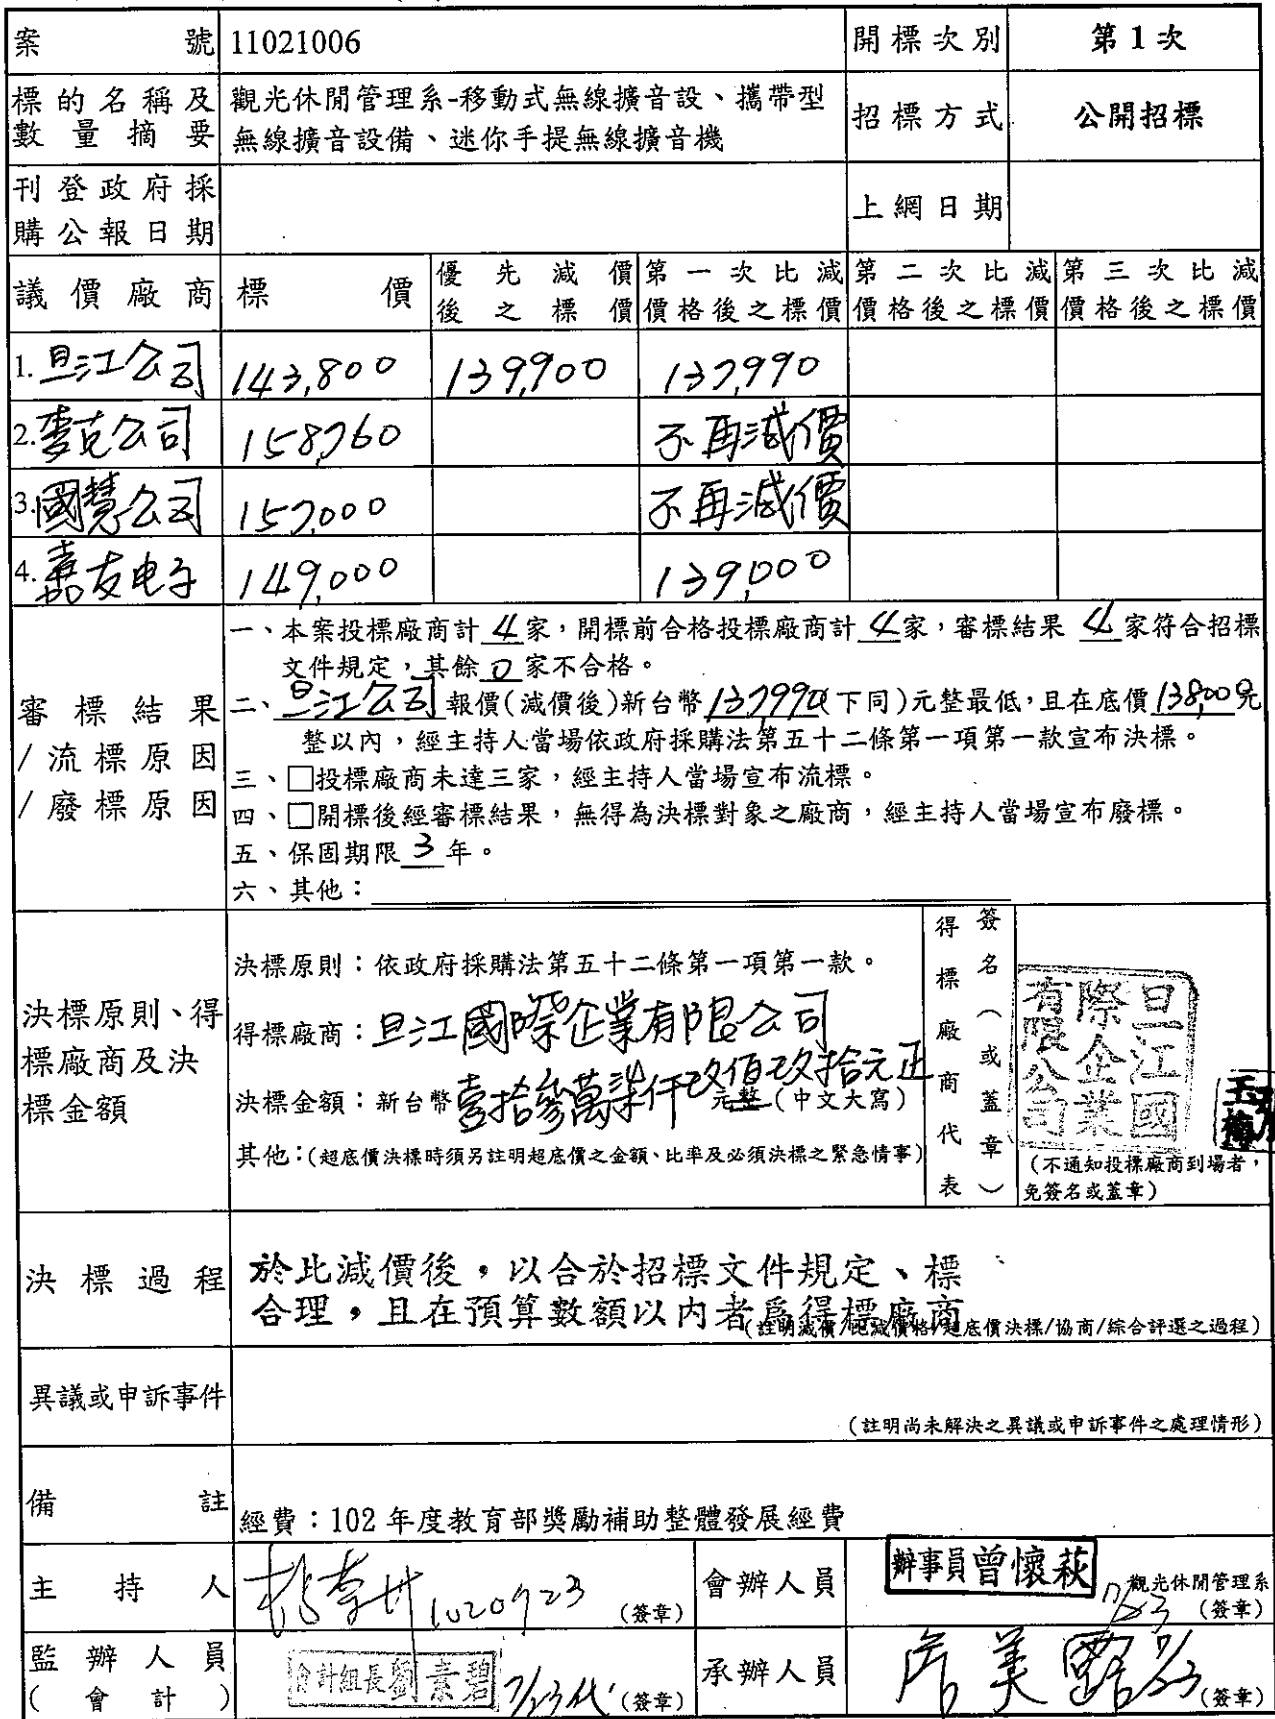 案號 11021006 開標次別 第1次
標的名稱及數量摘要 觀光休閒管理系-移動式無線擴音設、攜帶型
無線擴音設備、迷你手提無線擴音機 招標方式 公開招標
刊登政府採購公報日期 上網日期
議價廠商 標價 優先減價後之標價 第一次比減價格後之標價 第二次比減價格後之標價 第三次比減價格後之標價
1. 旦江公司 143,800 139,900 137,990
2. 麥克公司 158,760 不再減價
3. 國慧公司 157,000 不再減價
4. 嘉友电子 149,000 139,000
審標結果
/流標原因
/廢標原因
一、本案投標廠商計4家,開標前合格投標廠商計4家,審標結果 4家符合招標
文件規定,其餘0家不合格。
二、旦江公司報價(減價後)新台幣137,990(下同)元整最低,且在底價138,000元
整以內,經主持人當場依政府採購法第五十二條第一項第一款宣布決標。
三、□投標廠商未達三家,經主持人當場宣布流標。
四、□開標後經審標結果,無得為決標對象之廠商,經主持人當場宣布廢標。
五、保固期限3年。
六、其他:
決標原則、得
標廠商及決
標金額
決標原則:依政府採購法第五十二條第一項第一款。
得標廠商:旦江國際企業有限公司
決標金額:新台幣壹拾參萬柒仟玖佰玖拾元正 元整(中文大寫)
其他:(超底價決標時須另註明超底價之金額、比率及必須決標之緊急情事)
得標廠商代表
簽名(或蓋章)
旦江國
際企業
有限公司
(不通知投標廠商到場者,
免簽名或蓋章)
決標過程
於比減價後,以合於招標文件規定、標
合理,且在預算數額以內者為得標廠商
(註明減價/比減價格/超底價決標/協商/綜合評選之過程)
異議或申訴事件
(註明尚未解決之異議或申訴事件之處理情形)
備註 經費:102年度教育部獎勵補助整體發展經費
主持人 1020723 (簽章) 會辦人員 辦事員曾懷萩 觀光休閒管理系
7/23 (簽章)
監辦人員
(會計) 會計組長劉素碧 7/23代 (簽章) 承辦人員 詹美露 7/23 (簽章)